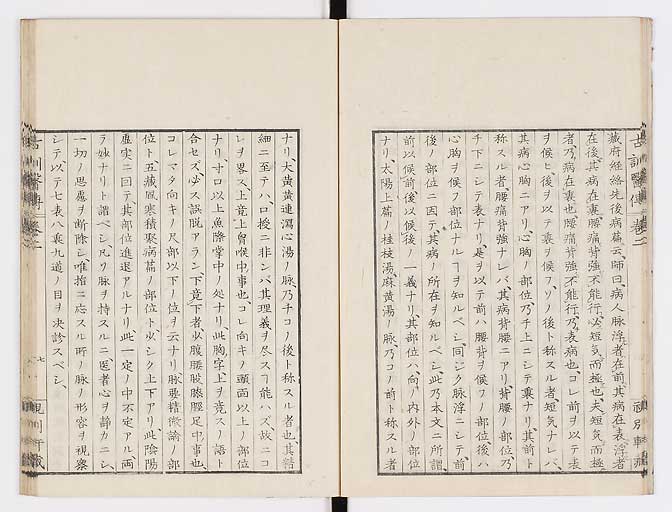 藏府経絡先後病篇云、師曰、病人脉浮者在前、其病在表、浮者
在後、其病在裏、腰痛背強不能行、必短気而極也、夫短気而極
者、乃病在裏也、腰痛背強不能行、乃表病也、コレ前ヲ以テ表
ヲ候ヒ後ヲ以テ裏ヲ候フ、ソノ後ト称スル者短気ナレバ、
其病心胸ニアリ、心胸ノ部位乃チ上ニシテ裏ナリ、其前ト
称スル者、腰痛背強ナレバ、其病背腰ニアリ、背腰ノ部位乃
チ下ニシテ表ナリ、是ヲ以テ前ハ腰背ヲ候フノ部位、後ハ
心胸ヲ候フ部位ナルヿヲ知ルベシ、同ジク脉浮ニシテ、前
後ノ部位ニ因テ、其病ノ所在ヲ知ルベシ、此乃本文ニ所謂
前以候前後以候後ノ一義ナリ、其部位ハ、向ノ内外ノ部位
ナリ、太陽上篇ノ桂枝湯、麻黄湯ノ脉、乃コノ前ト称スル者
ナリ、大黄黄連瀉心湯ノ脉、乃チコノ後ト称スル者也、其詳
細ニ至テハ、口授ニ非ンバ、其理義ヲ尽スヿ能ハズ、故ニコ
レヲ略ス、上竟上曾喉中事也、コレ向キノ頭面以上ノ部位
ナリ、寸口以上魚際掌中ノ処ナリ、此胸字、上ヲ竟スノ語ト
合セズ、必ズ誤脱アラン、下竟下者少腹腰股膝脛足中事也、
コレマタ向キノ尺部以下ノ位ヲ云ナリ、脉要精微論ノ部
位ト、五藏風寒積聚病篇ノ部位ト、少シク上下アリ、此陰陽
虚実ニ因テ其部位進退アルナリ、此一定ノ中不定アル両
ラ妙ナリト諳ベシ、凡ソ脉ヲ持スルニ医者心ヲ静カニシ、
一切ノ思慮ヲ断除シ、唯指ニ応スル所ノ脉ノ形容ヲ視察
シテ、以テ七表八裏九道ノ目ヲ決診スベシ、
古訓醫傳 巻二
七